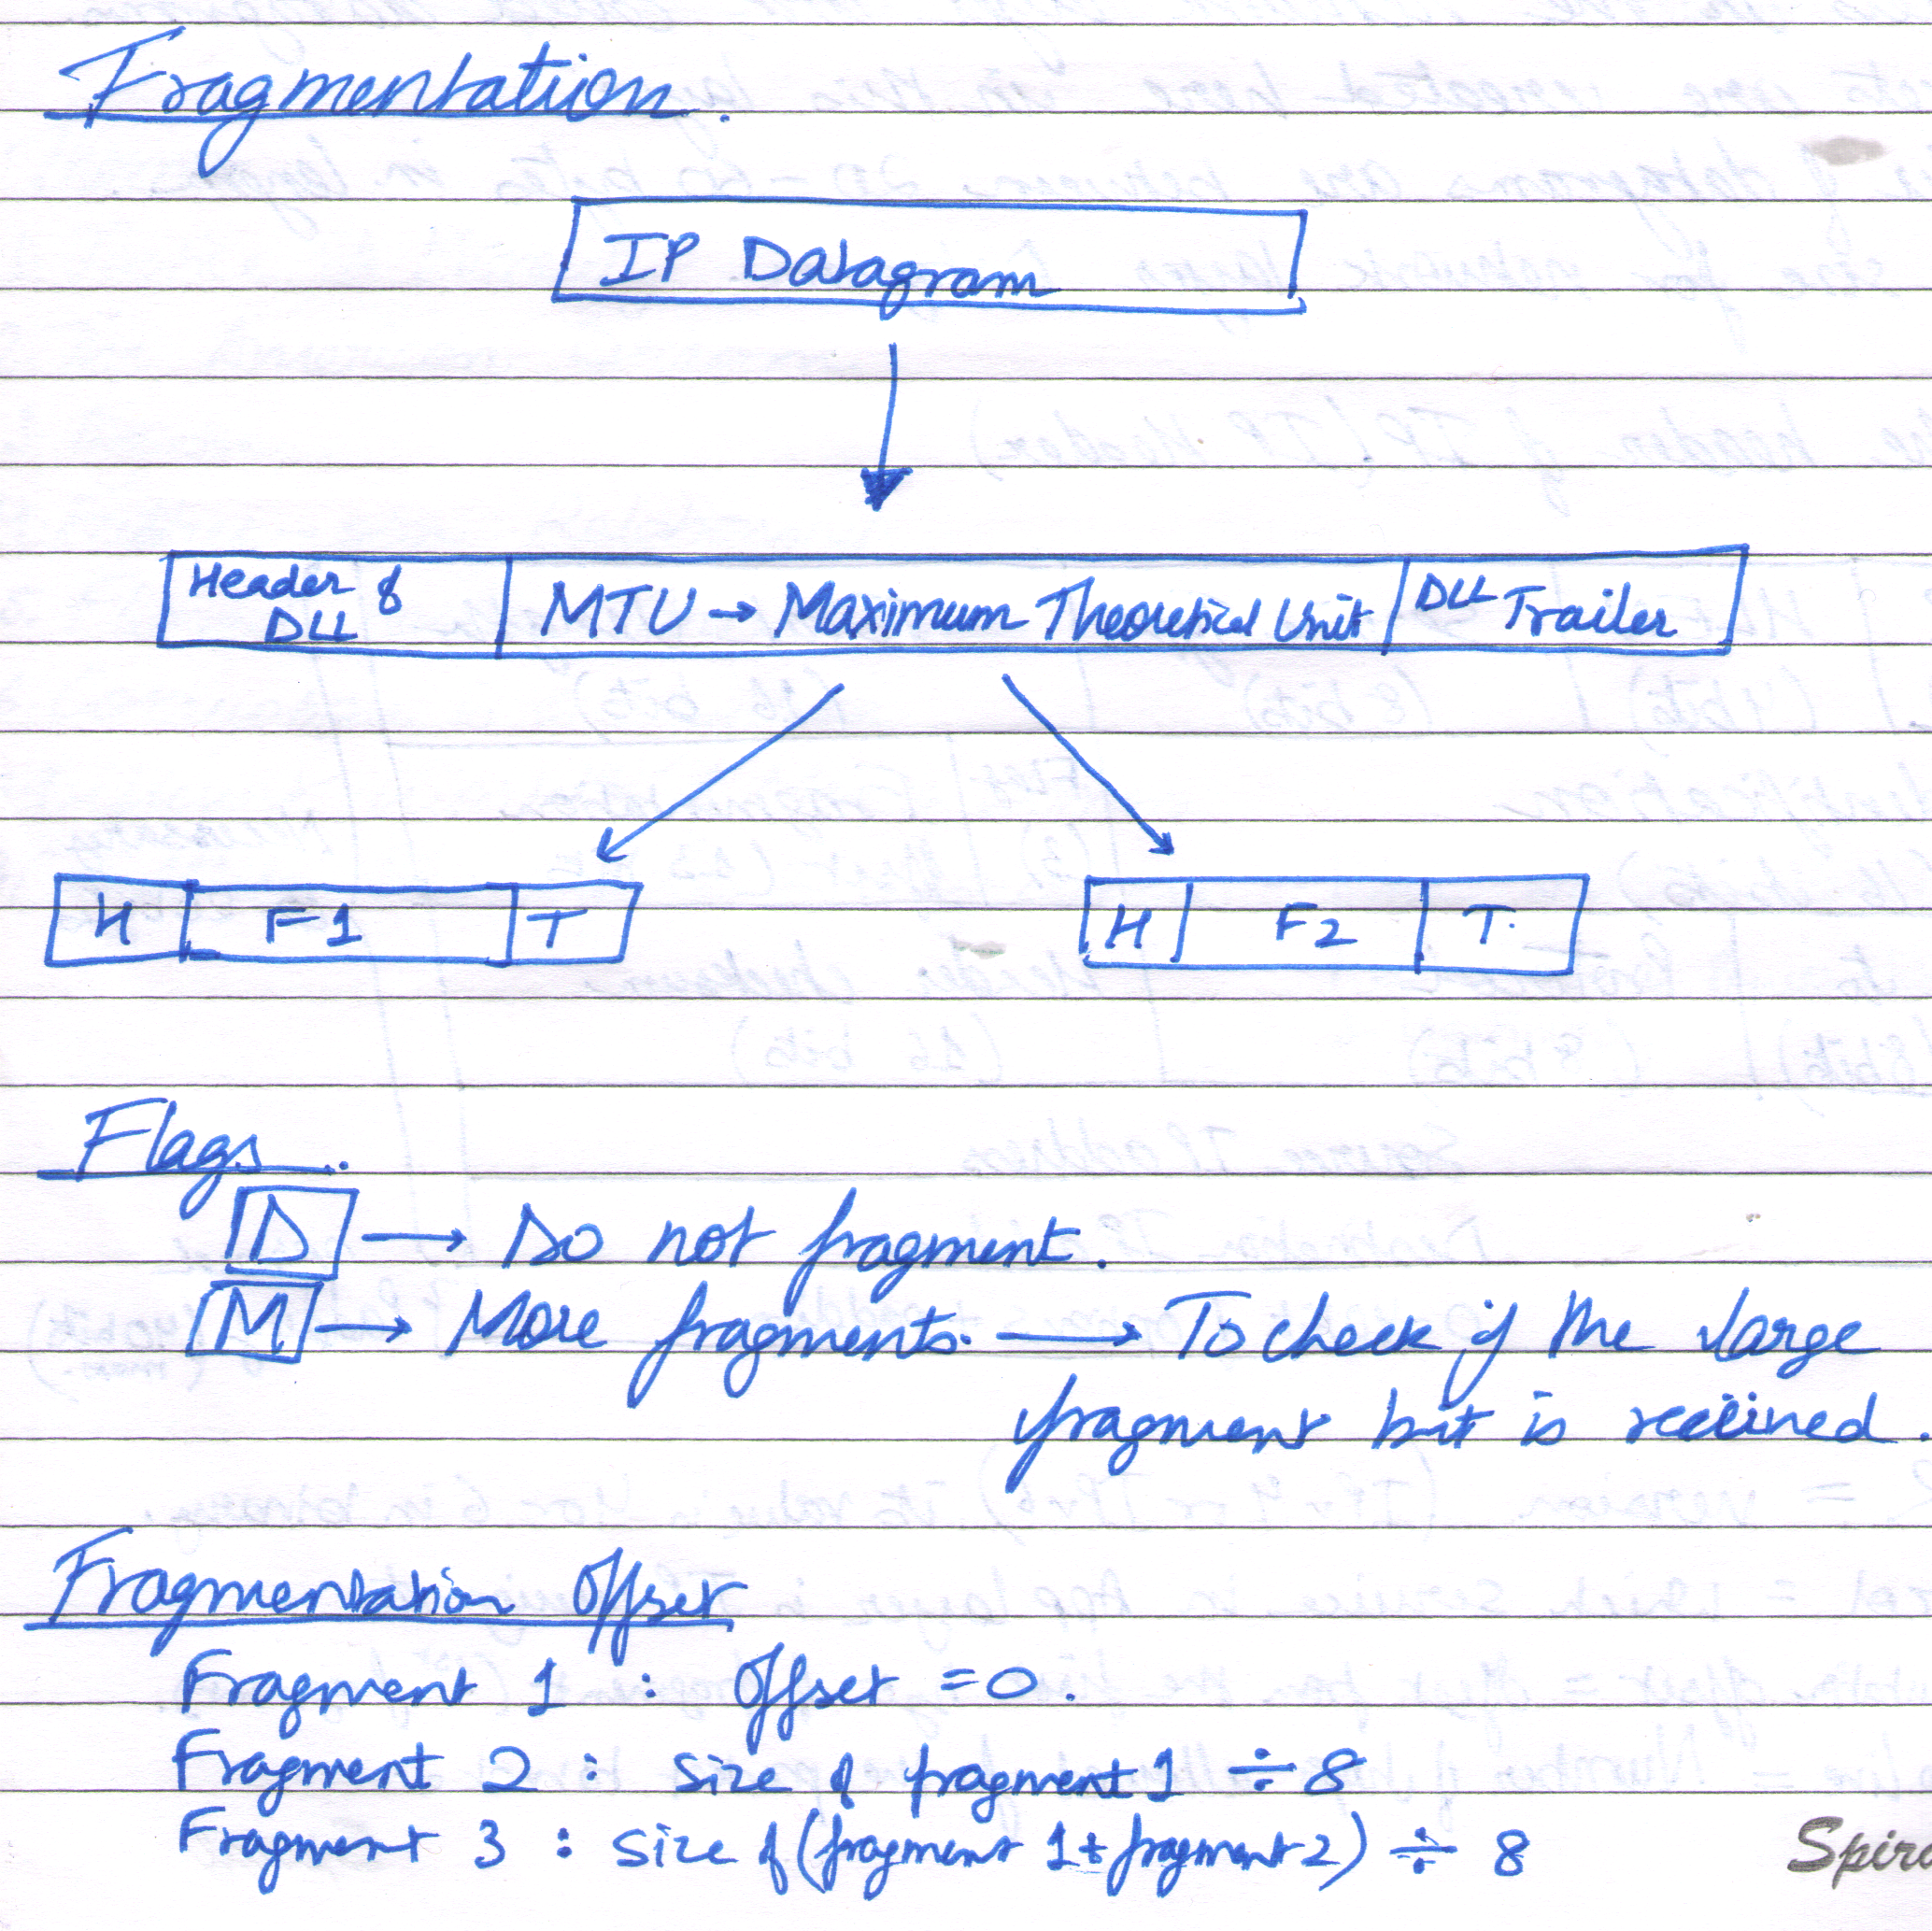 Fragmentation.
IP Datagram
Header of DLL
MTU → Maximum Theoretical Unit
DLL Trailer
H F1 T
H F2 T.
Flags.
D → Do not fragment.
M → More fragments. → To check if the large
fragment bit is received.
Fragmentation Offset
Fragment 1 : Offset = 0.
Fragment 2 : size of fragment 1 ÷ 8
Fragment 3 : size of (fragment 1 + fragment 2) ÷ 8